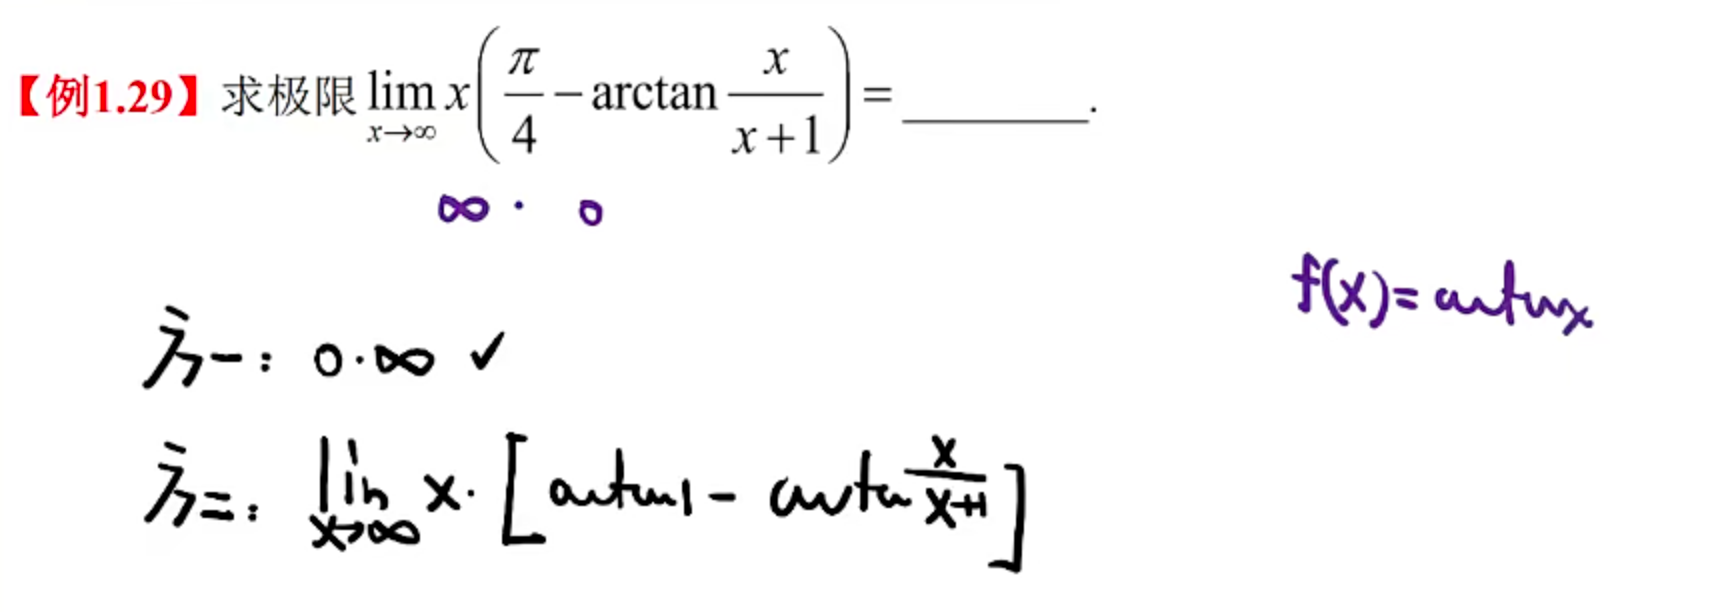 【例1.29】求极限 lim x→∞ x(π/4 − arctan x/(x+1)) = ________.
∞ · 0
f(x)=arctanx
方一: 0·∞ ✓
方二: lim x→∞ x·[arctan1 − arctan x/(x+1)]